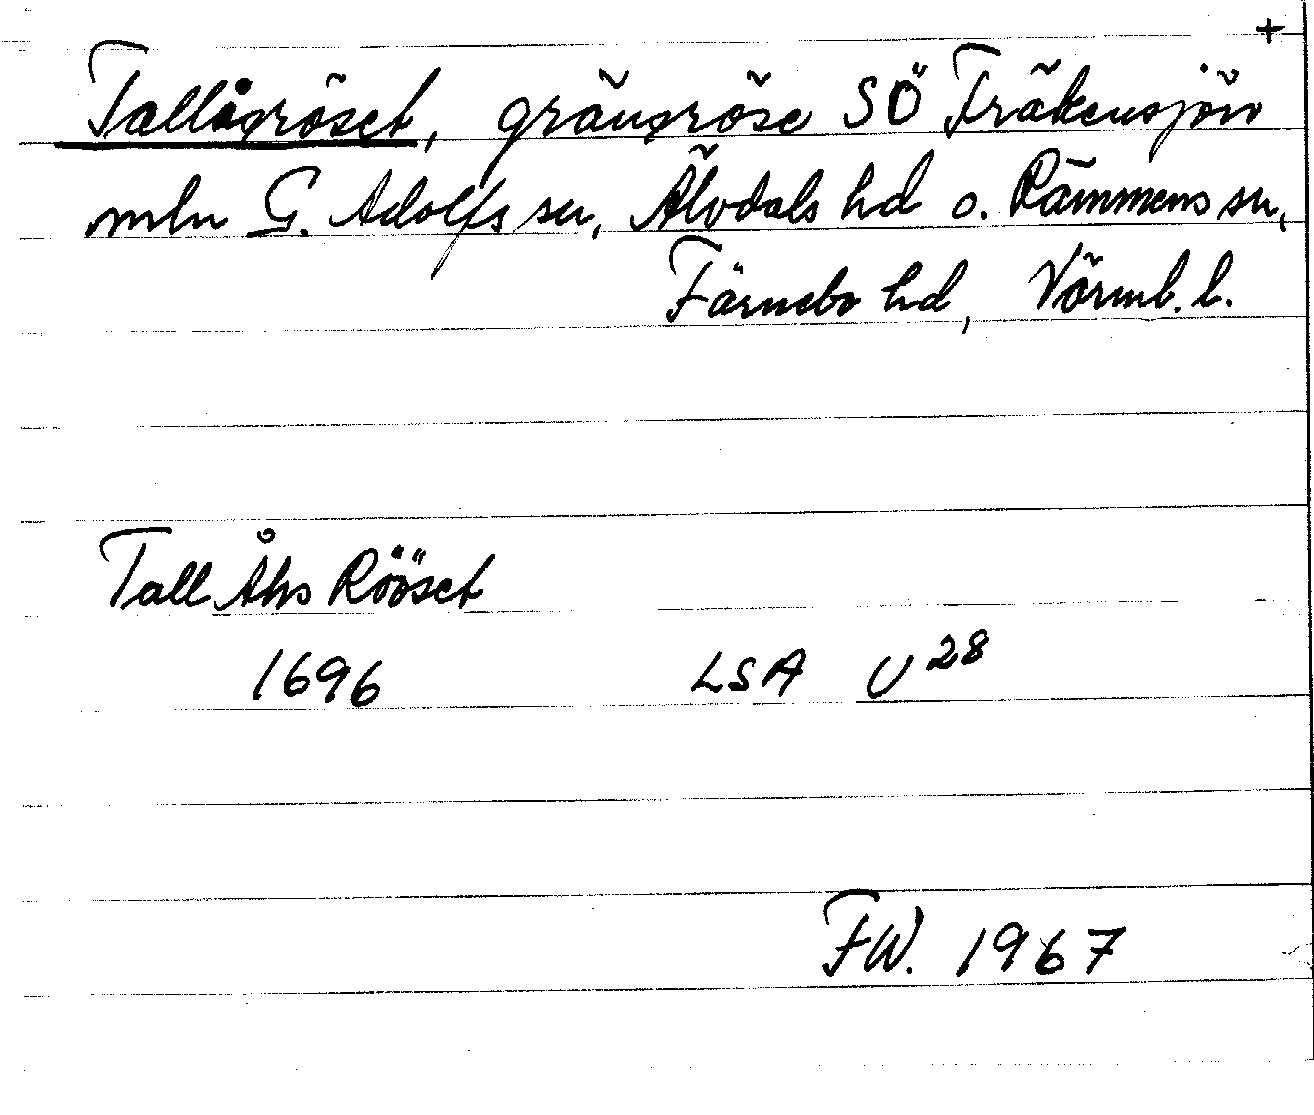 +
Tallågröset, gränsröse SÖ Fräkensjön
mln G. Adolfs sn, Älvdals hd o. Rämmens sn,
Färnebo hd, Värml. l.
Tall Åhs Rööset
1696 LSA U28
FW. 1967